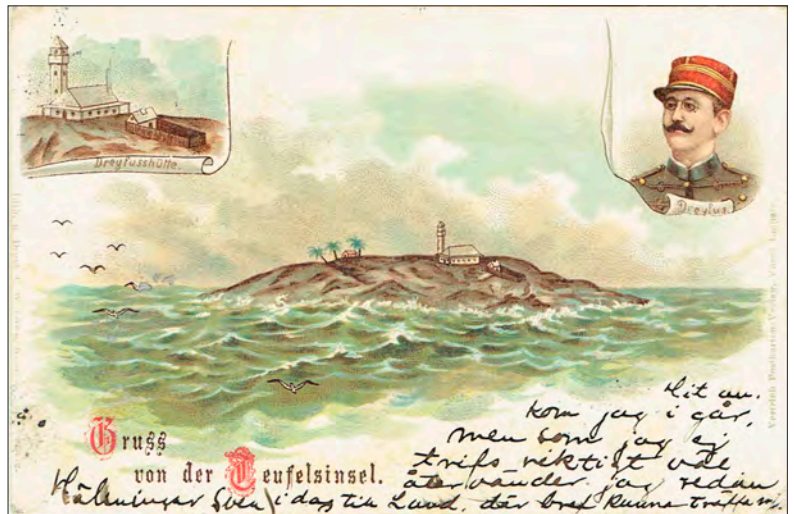 Dreyfusshütte.
Dreyfus.
Gruss
von der Teufelsinsel.
Hit an.
kom jag i går,
men som jag ej
trifs riktigt väl
återvänder jag redan
i dag till Lund, där bref kunna träffa
Hälsningar Sven
Vertrieb Postkarten-Verlag,